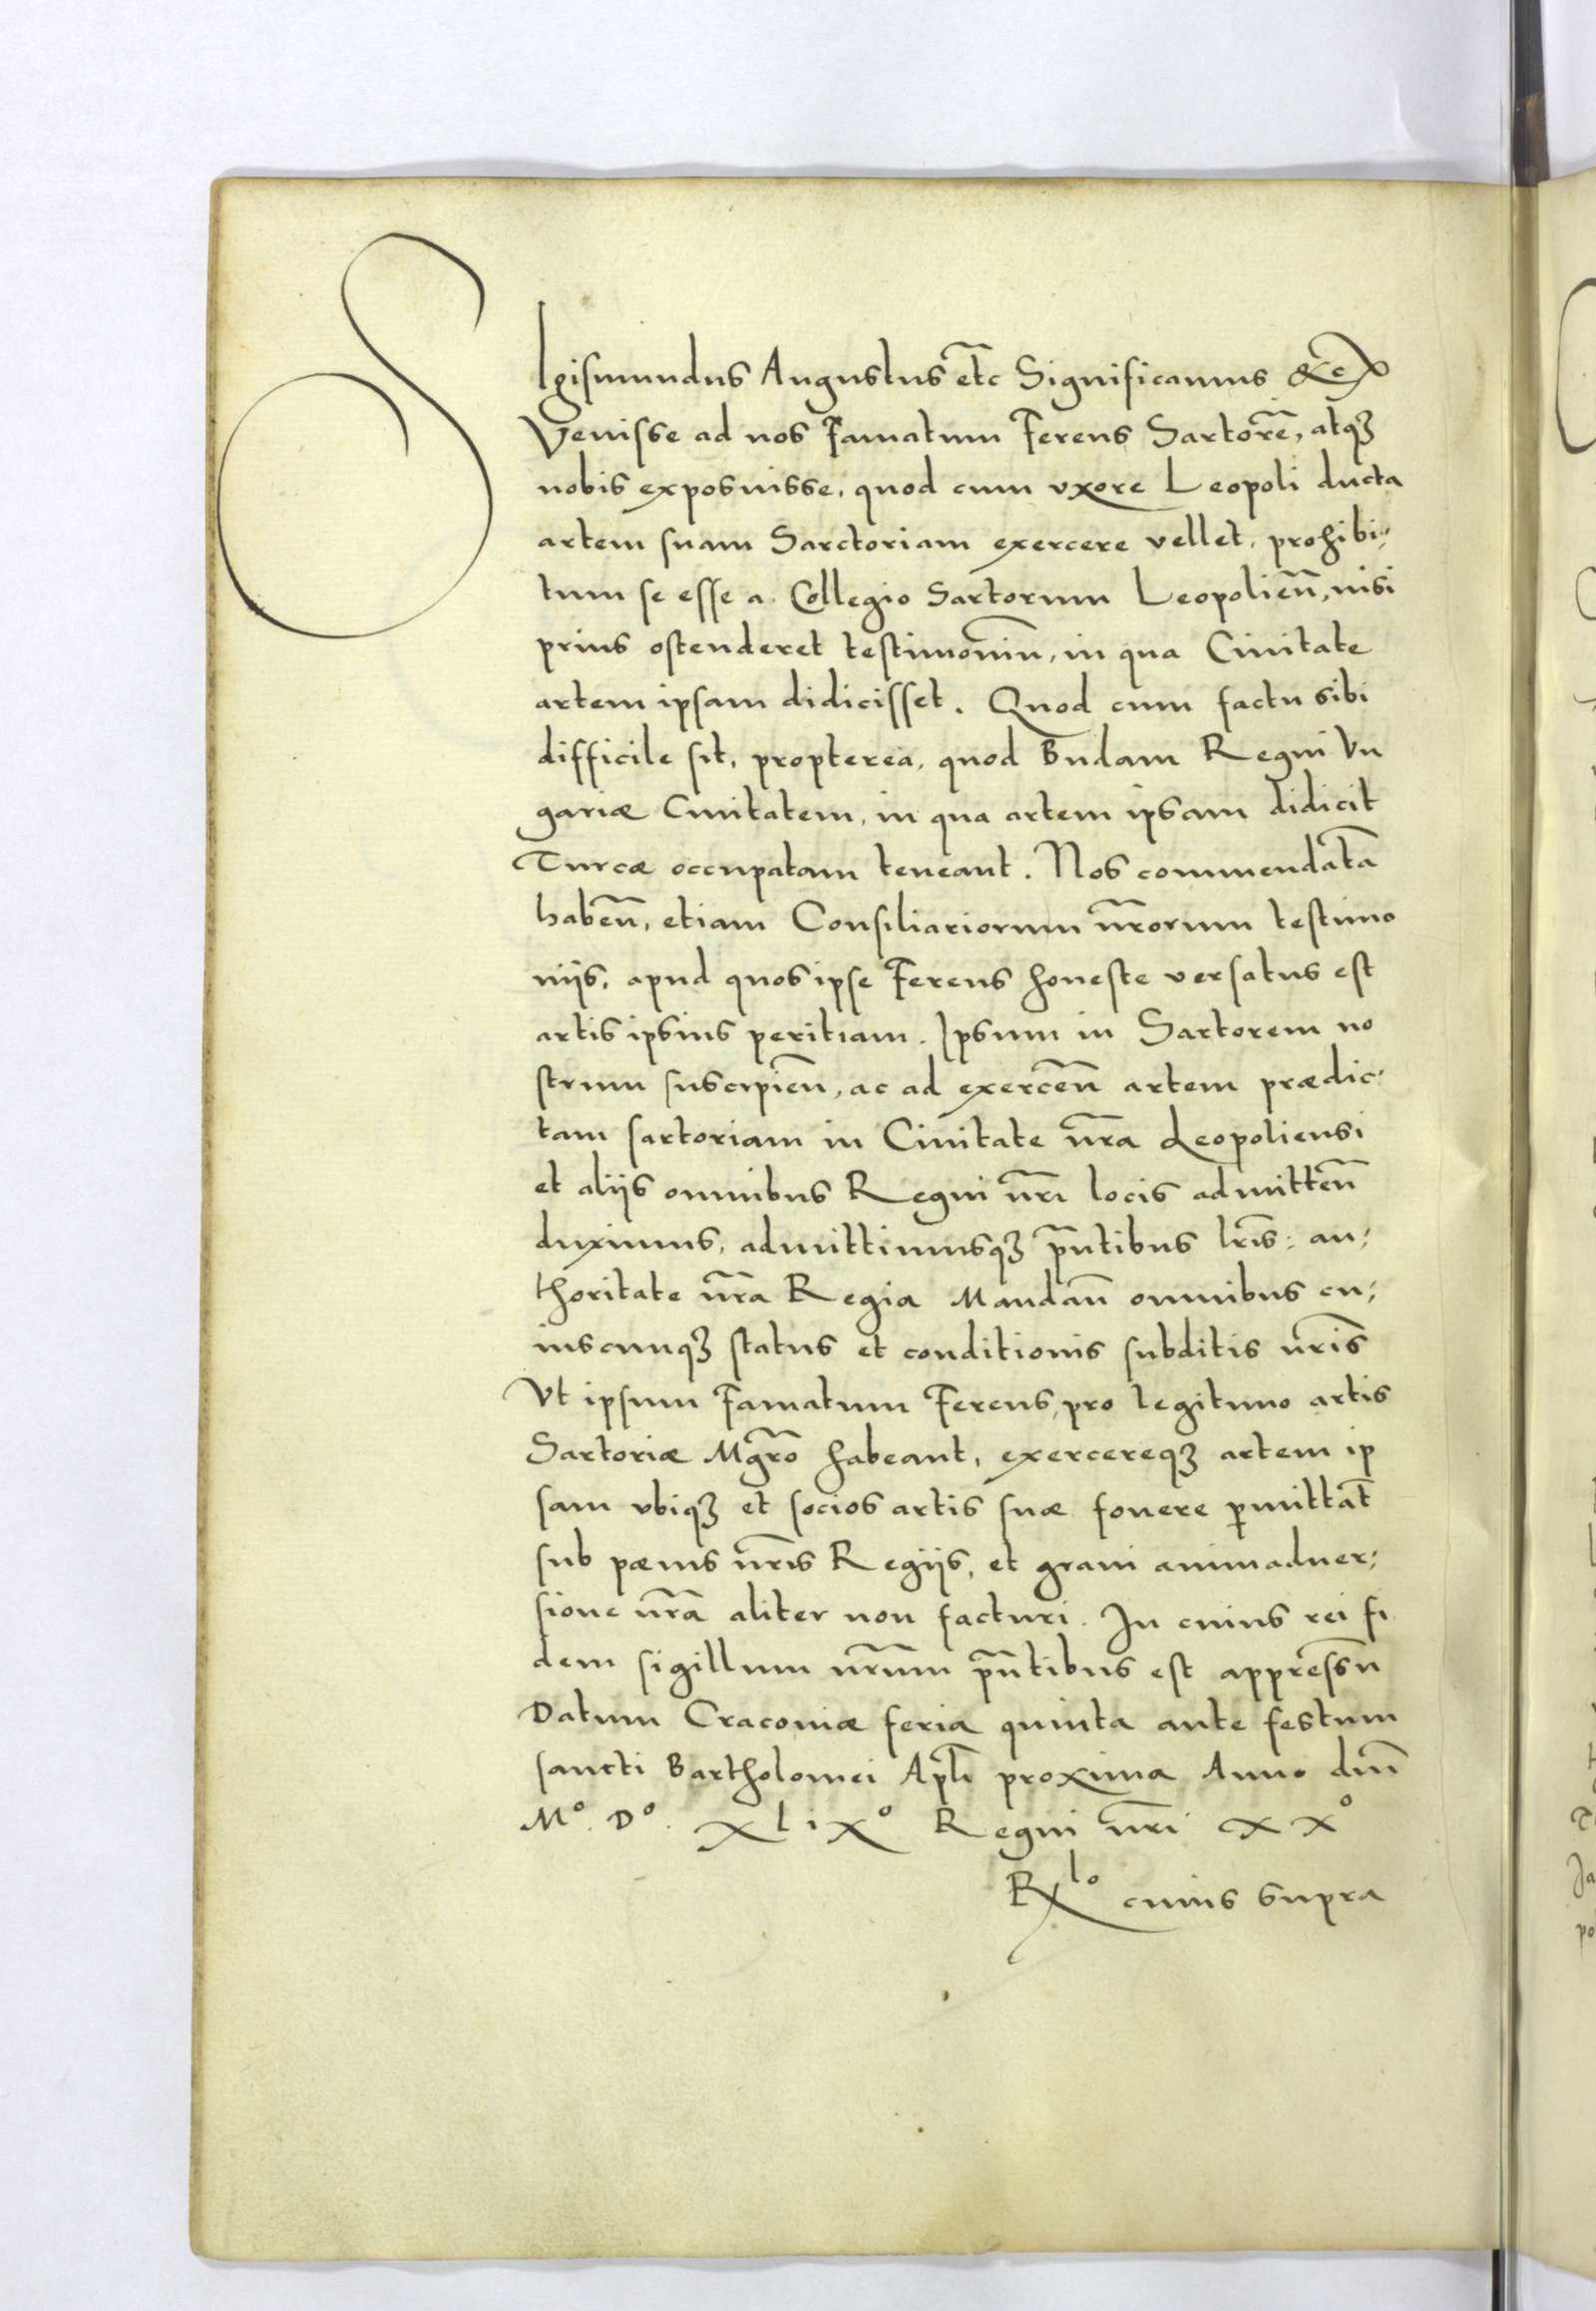 SIgismundus Augustus etc Significamus &c
Venisse ad nos Famatum Ferens Sartorē, atqꝫ
nobis exposuisse, quod cum vxore Leopoli ducta
artem suam Sarctoriam exercere vellet, prohibi⸗
tum se esse a Collegio Sartorum Leopolien̄, nisi
prius ostenderet testimoniū, in qua Ciuitate
artem ipsam didicisset. Quod cum factu sibi
difficile sit, propterea, quod Budam Regni Vn
gariæ Ciuitatem, in qua artem ipsam didicit
Turcæ occupatam teneant. Nos commendatā
haben̄, etiam Consiliariorum nr̄orum testimo
niis, apud quos ipse Ferens honeste versatus est
artis ipsius peritiam. Ipsum in Sartorem no
strum suscipien̄, ac ad exercen̄ artem prædic⸗
tam sartoriam in Ciuitate nr̄a Leopoliensi
et aliis omnibus Regni nr̄i locis admitten̄
duximus, admittimusqꝫ pn̄tibus lr̄is: au⸗
thoritate nr̄a Regia Mandan̄ omnibus cu⸗
iuscunqꝫ status et conditionis subditis nr̄is
Vt ipsum Famatum Ferens, pro legitimo artis
Sartoriæ Mgr̄o habeant, exercereqꝫ artem ip
sam vbiqꝫ et socios artis suæ fouere ꝑmittāt
sub pænis nr̄is Regiis, et graui animaduer⸗
sione nr̄a aliter non facturi. In cuius rei fi
dem sigillum nr̄um pn̄tibus est appressū
Datum Cracouiæ feria quinta ante festum
sancti Bartholomei Apl̄i proxima Anno dn̄i
Mº. Dº. XLiXº Regni nr̄i XXº
Rlº cuius supra